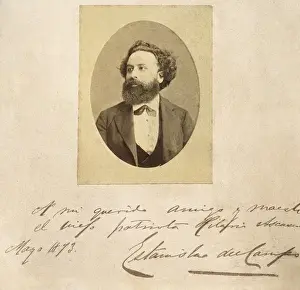 A mi querido amigo y maestro
el viejo patriota Hilario Ascasubi
Mayo 1873. Estanislao del Campo